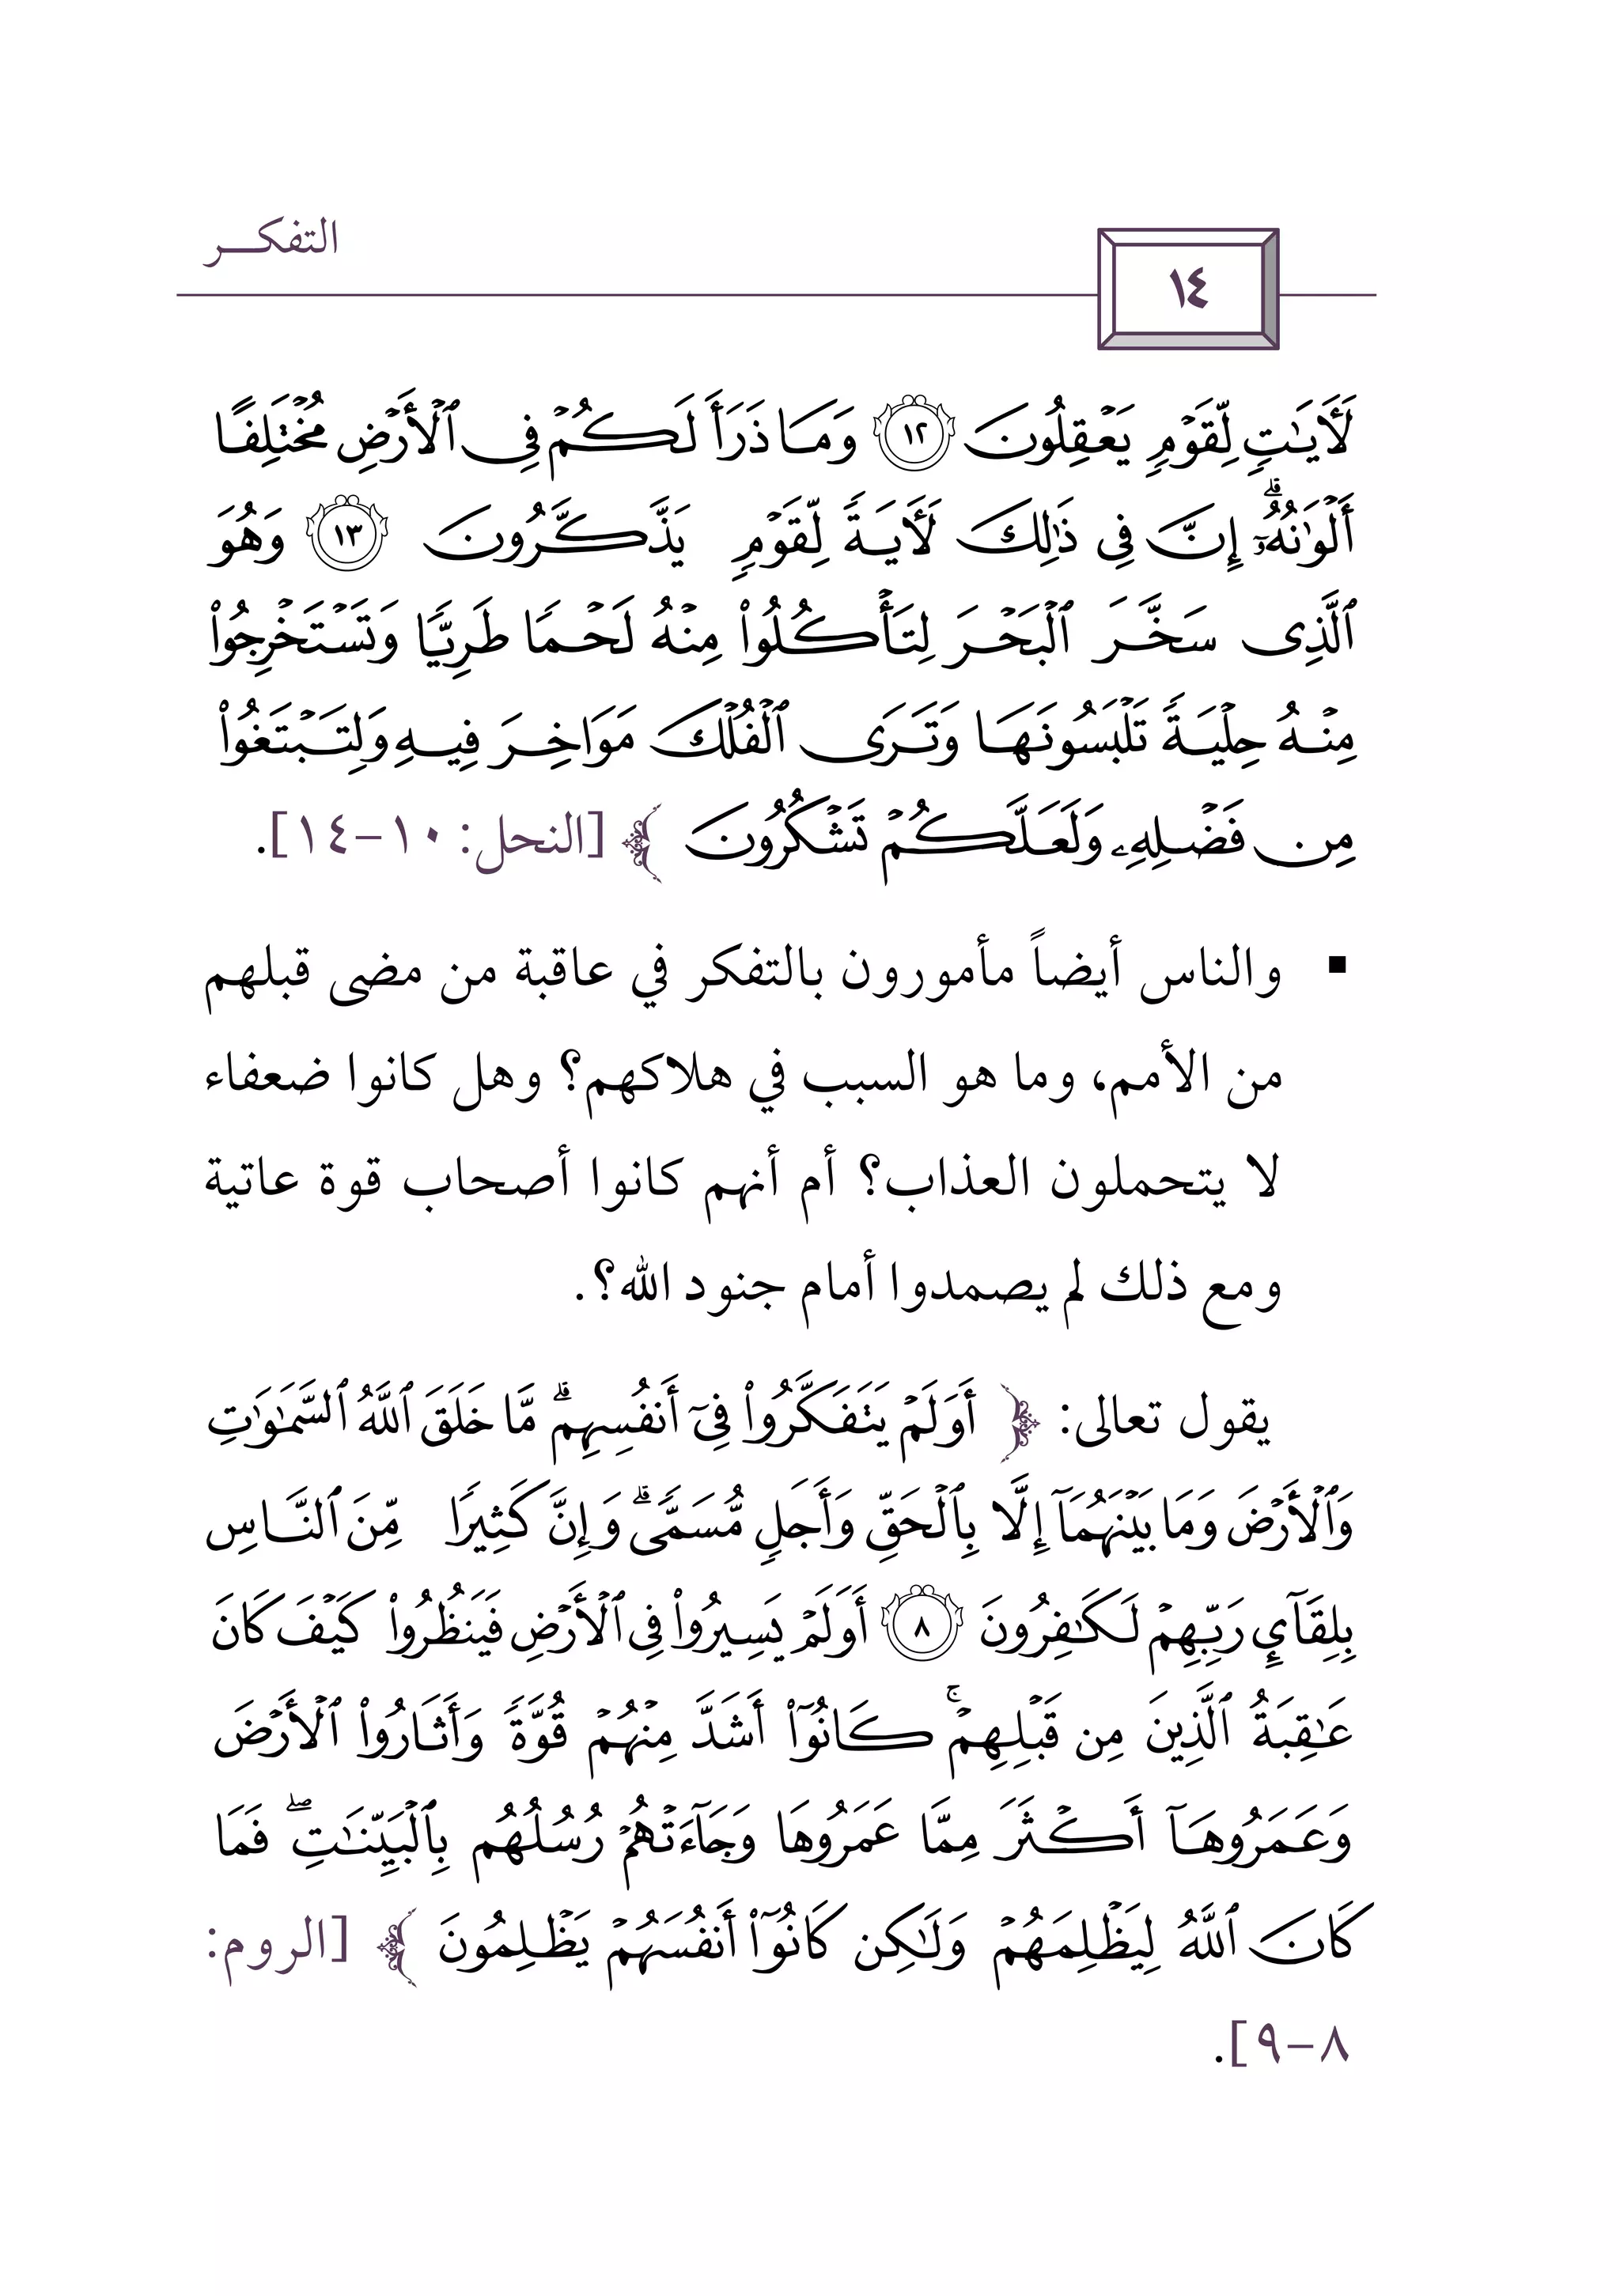 التفكـــر
١٤
لَأٓيَٰتٖ لِّقَوۡمٖ يَعۡقِلُونَ ١٢ وَمَا ذَرَأَ لَكُمۡ فِي ٱلۡأَرۡضِ مُخۡتَلِفًا
أَلۡوَٰنُهُۥٓۗ إِنَّ فِي ذَٰلِكَ لَأٓيَةٗ لِّقَوۡمٖ يَذَّكَّرُونَ ١٣ وَهُوَ
ٱلَّذِي سَخَّرَ ٱلۡبَحۡرَ لِتَأۡكُلُواْ مِنۡهُ لَحۡمٗا طَرِيّٗا وَتَسۡتَخۡرِجُواْ
مِنۡهُ حِلۡيَةٗ تَلۡبَسُونَهَا وَتَرَى ٱلۡفُلۡكَ مَوَاخِرَ فِيهِ وَلِتَبۡتَغُواْ
مِن فَضۡلِهِۦ وَلَعَلَّكُمۡ تَشۡكُرُونَ ﴾ [النحل: ١٠-١٤].
▪ والناس أيضاً مأمورون بالتفكر في عاقبة من مضى قبلهم
من الأمم، وما هو السبب في هلاكهم؟ وهل كانوا ضعفاء
لا يتحملون العذاب؟ أم أنهم كانوا أصحاب قوة عاتية
ومع ذلك لم يصمدوا أمام جنود الله؟.
يقول تعالى: ﴿ أَوَلَمۡ يَتَفَكَّرُواْ فِيٓ أَنفُسِهِمۗ مَّا خَلَقَ ٱللَّهُ ٱلسَّمَٰوَٰتِ
وَٱلۡأَرۡضَ وَمَا بَيۡنَهُمَآ إِلَّا بِٱلۡحَقِّ وَأَجَلٖ مُّسَمّٗىۗ وَإِنَّ كَثِيرٗا مِّنَ ٱلنَّاسِ
بِلِقَآيِٕ رَبِّهِمۡ لَكَٰفِرُونَ ٨ أَوَلَمۡ يَسِيرُواْ فِي ٱلۡأَرۡضِ فَيَنظُرُواْ كَيۡفَ كَانَ
عَٰقِبَةُ ٱلَّذِينَ مِن قَبۡلِهِمۡۚ كَانُوٓاْ أَشَدَّ مِنۡهُمۡ قُوَّةٗ وَأَثَارُواْ ٱلۡأَرۡضَ
وَعَمَرُوهَآ أَكۡثَرَ مِمَّا عَمَرُوهَا وَجَآءَتۡهُمۡ رُسُلُهُم بِٱلۡبَيِّنَٰتِۖ فَمَا
كَانَ ٱللَّهُ لِيَظۡلِمَهُمۡ وَلَٰكِن كَانُوٓاْ أَنفُسَهُمۡ يَظۡلِمُونَ ﴾ [الروم:
٨-٩].